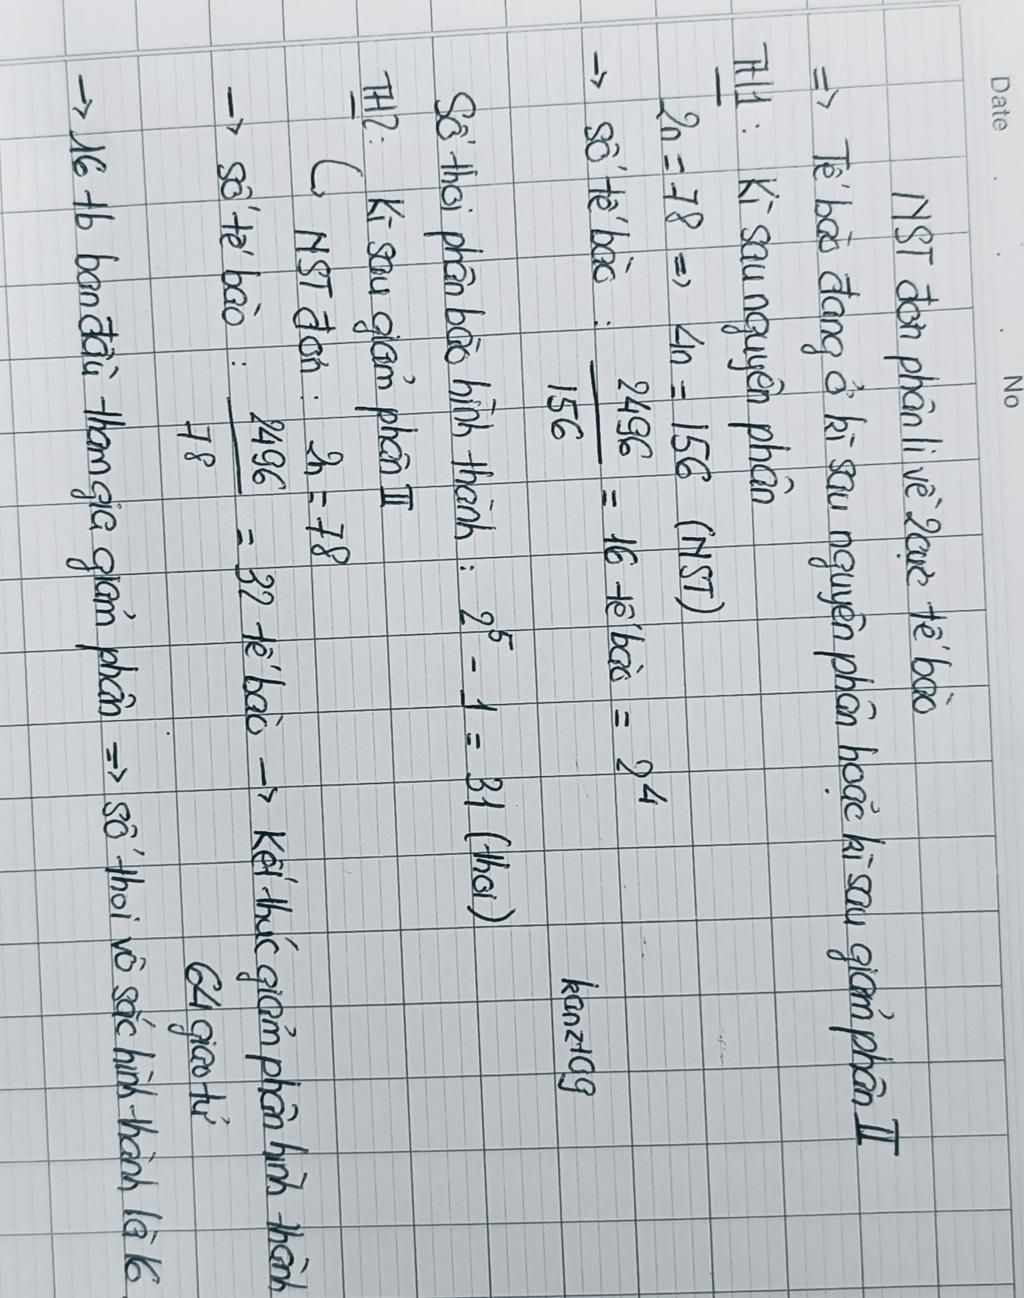 Date No
NST đơn phân li về 2 cực tế bào
=> Tế bào đang ở kì sau nguyên phân hoặc kì sau giảm phân II
TH1: Kì sau nguyên phân
2n = 78 => 4n = 156 (NST)
→ số tế bào : 2496/156 = 16 tế bào = 2^4
kanz10g
Số thoi phân bào hình thành : 2^5 - 1 = 31 (thoi)
TH2: Kì sau giảm phân II
( NST đơn : 2n = 78
→ số tế bào : 2496/78 = 32 tế bào → Kết thúc giảm phân hình thành
64 giao tử
→ 16 tb ban đầu tham gia giảm phân => số thoi vô sắc hình thành là 16